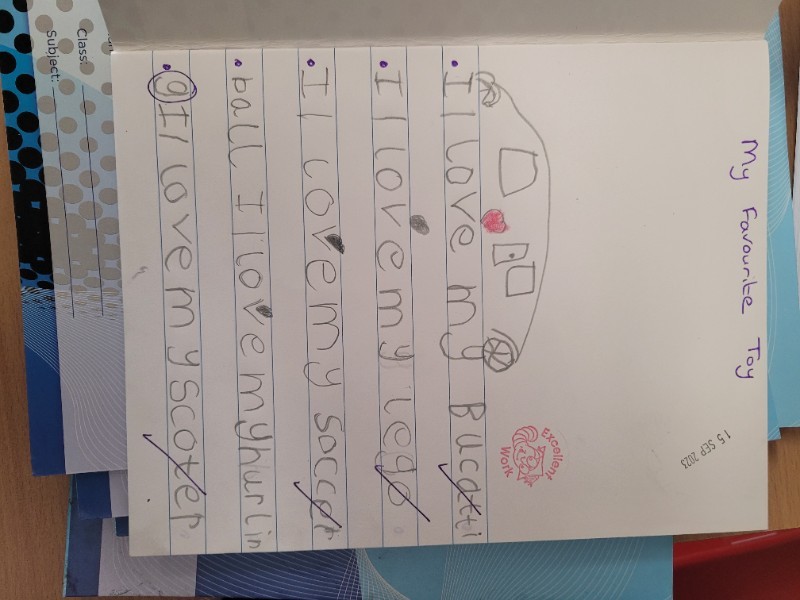 My Favourite Toy
15 SEP 2023
Excellent
Work
I love my Bucatti
I love my lego
I love my soccer
ball I love myhurlin
gI love my scoter
Class:
Subject: